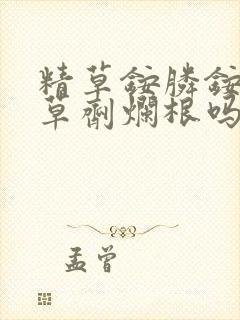 精草銨膦銨
草劑爛根吗
孟曾